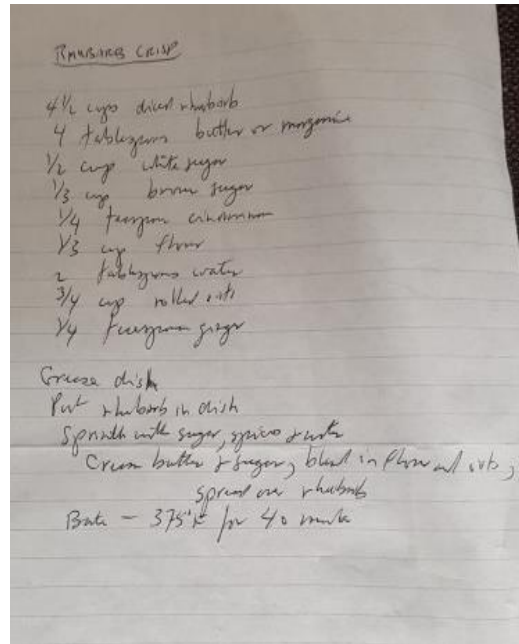 RHUBARB CRISP
4 1/2 cups diced rhubarb
4 tablespoons butter or margarine
1/2 cup white sugar
1/3 cup brown sugar
1/4 teaspoon cinnammon
1/3 cup flour
2 tablespoons water
3/4 cup rolled oats
1/4 teaspoon ginger
Grease dish
Put rhubarb in dish
Sprinkle with sugar, spices & water
Cream butter & sugar, blend in flour and oats,
spread over rhubarb
Bake - 375°F for 40 minutes